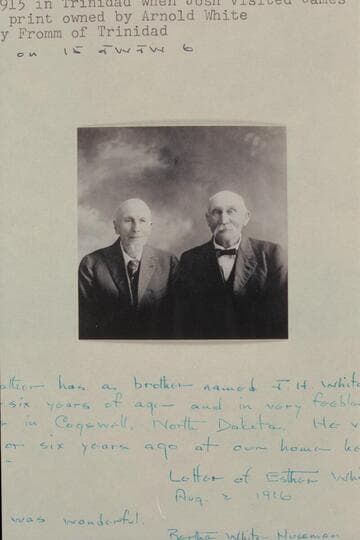 915 in Trinidad when Josh visited James
print owned by Arnold White
y Fromm of Trinidad
on 15
father has a brother named J. H. White
six years of age and in very feeble
in Cogswell, North Dakota. He
or six years ago at our home
Letter of Esther Whi
Aug. 2 1916
was wonderful.
Bertha White Nuseman